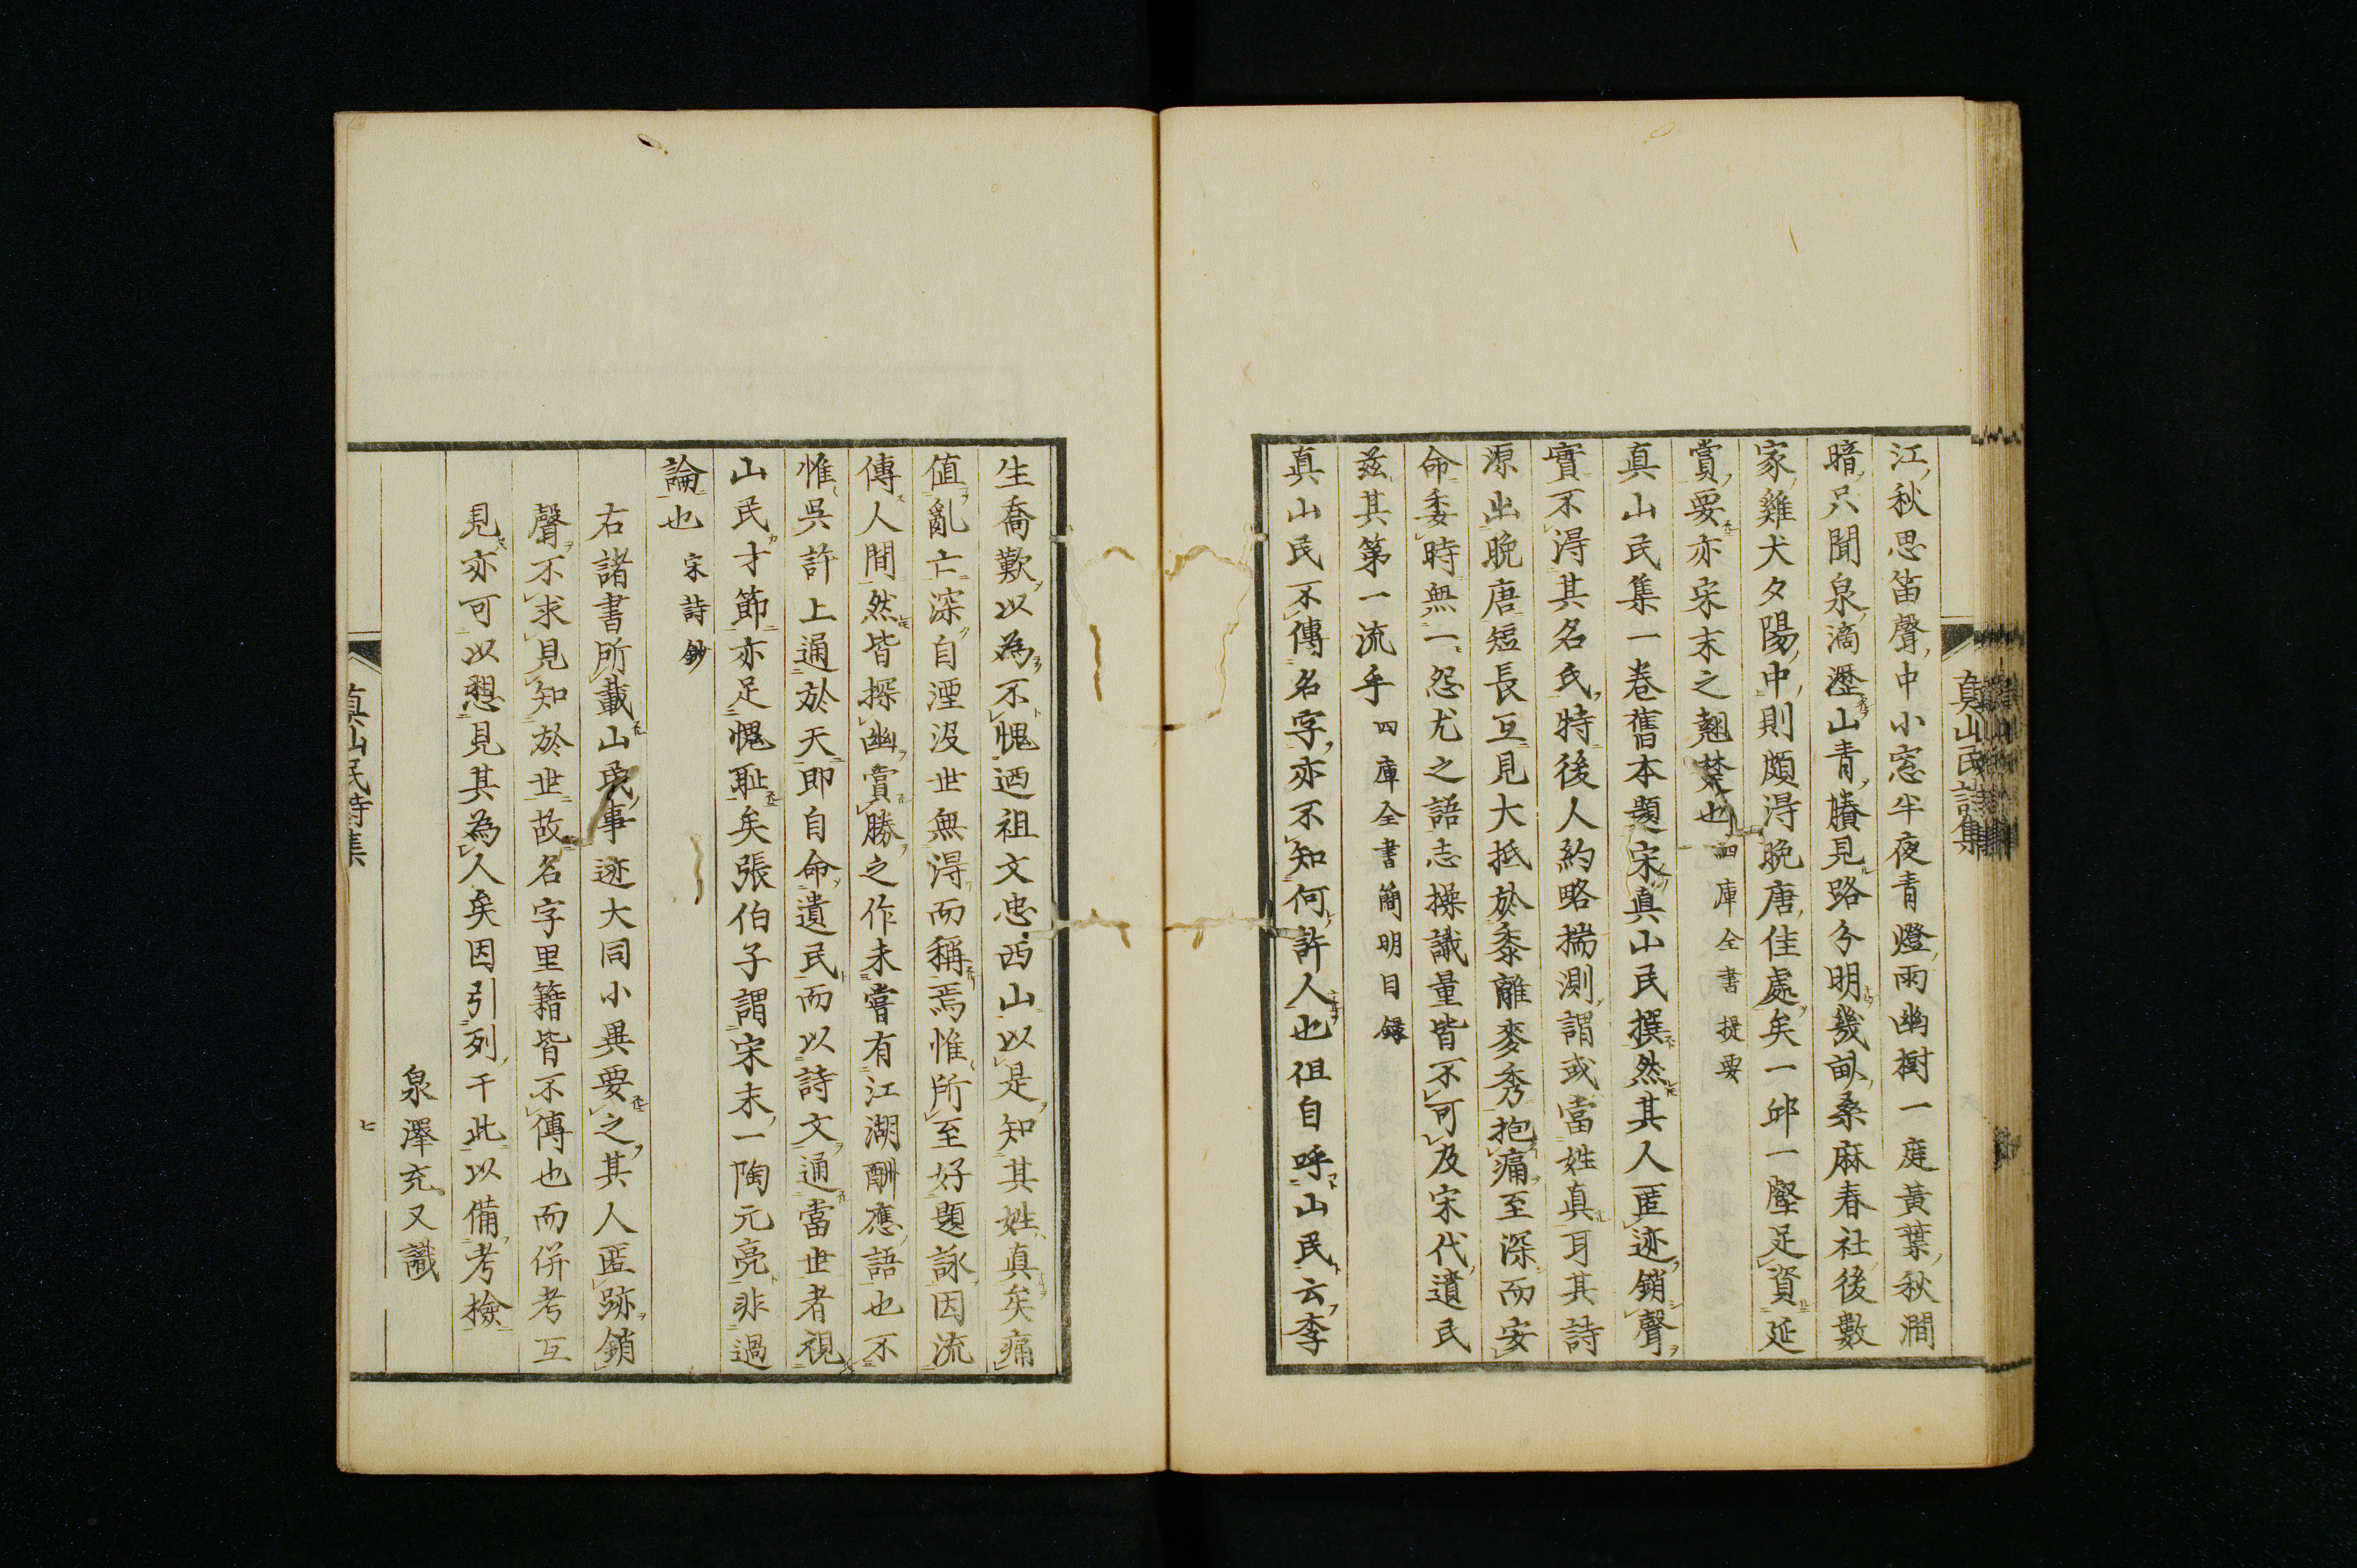 江秋思笛聲中小窓半夜青燈雨幽樹一庭黃葉秋澗
暗只聞泉滴瀝山青賸見路分明幾畝桑麻春社後數
家雞犬夕陽中則頗得晩唐佳處矣一邱一壑足資延
賞要亦宋末之翹楚也四庫全書提要
真山民集一卷舊本題宋真山民撰然其人匿迹銷聲
實不得其名氏特後人約略揣測謂或當姓真耳其詩
源出晩唐短長互見大抵於黍離麥秀抱痛至深而安
命委時無一怨尤之語志操識量皆不可及宋代遺民
茲其第一流乎四庫全書簡明目錄
真山民不傳名字亦不知何許人也但自呼山民云李
生喬歎以為不愧迺祖文忠西山以是知其姓真矣痛
值亂亡深自湮沒世無得而稱焉惟所至好題詠因流
傳人間然皆探幽賞勝之作未嘗有江湖酬應語也不
惟吳許上通於天即自命遺民而以詩文通當世者視
山民才節亦足愧恥矣張伯子謂宋末一陶元亮非過
論也宋詩鈔
右諸書所載山民事迹大同小異要之其人匿跡銷
聲不求見知於世故名字里籍皆不傳也而併考互
見亦可以想見其為人矣因引列于此以備考檢
泉澤充又識
真山民詩集
七
真山民詩集